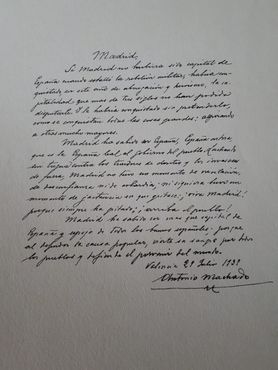 Madrid,
Si Madrid no hubiera sido capital de
España cuando estalló la rebelión militar, habría con-
quistado en este año de abnegación y heroísmo, la ca-
pitalidad que mas de tres siglos no han podido
disputarle. Y la habría conquistado sin pretenderlo,
como se conquistan todas las cosas grandes: aspirando
a otras mucho mayores.
Madrid ha sabido ser España, España entera
que es la España leal al gobierno del pueblo, luchando
sin tregua contra los traidores de dentro y los invasores
de fuera, Madrid no tuvo un momento de vacilación,
de desconfianza ni de cobardía; ni siquiera tuvo un
momento de jactancia en que gritase: ¡viva Madrid!
porque siempre ha gritado: ¡arriba el pueblo!
Madrid ha sabido ser mas que capital de
España y espejo de todos los buenos españoles; porque
al defender la causa popular, vierte su sangre por todos
los pueblos y defiende el porvenir del mundo.
Valencia 29 Julio 1937
Antonio Machado